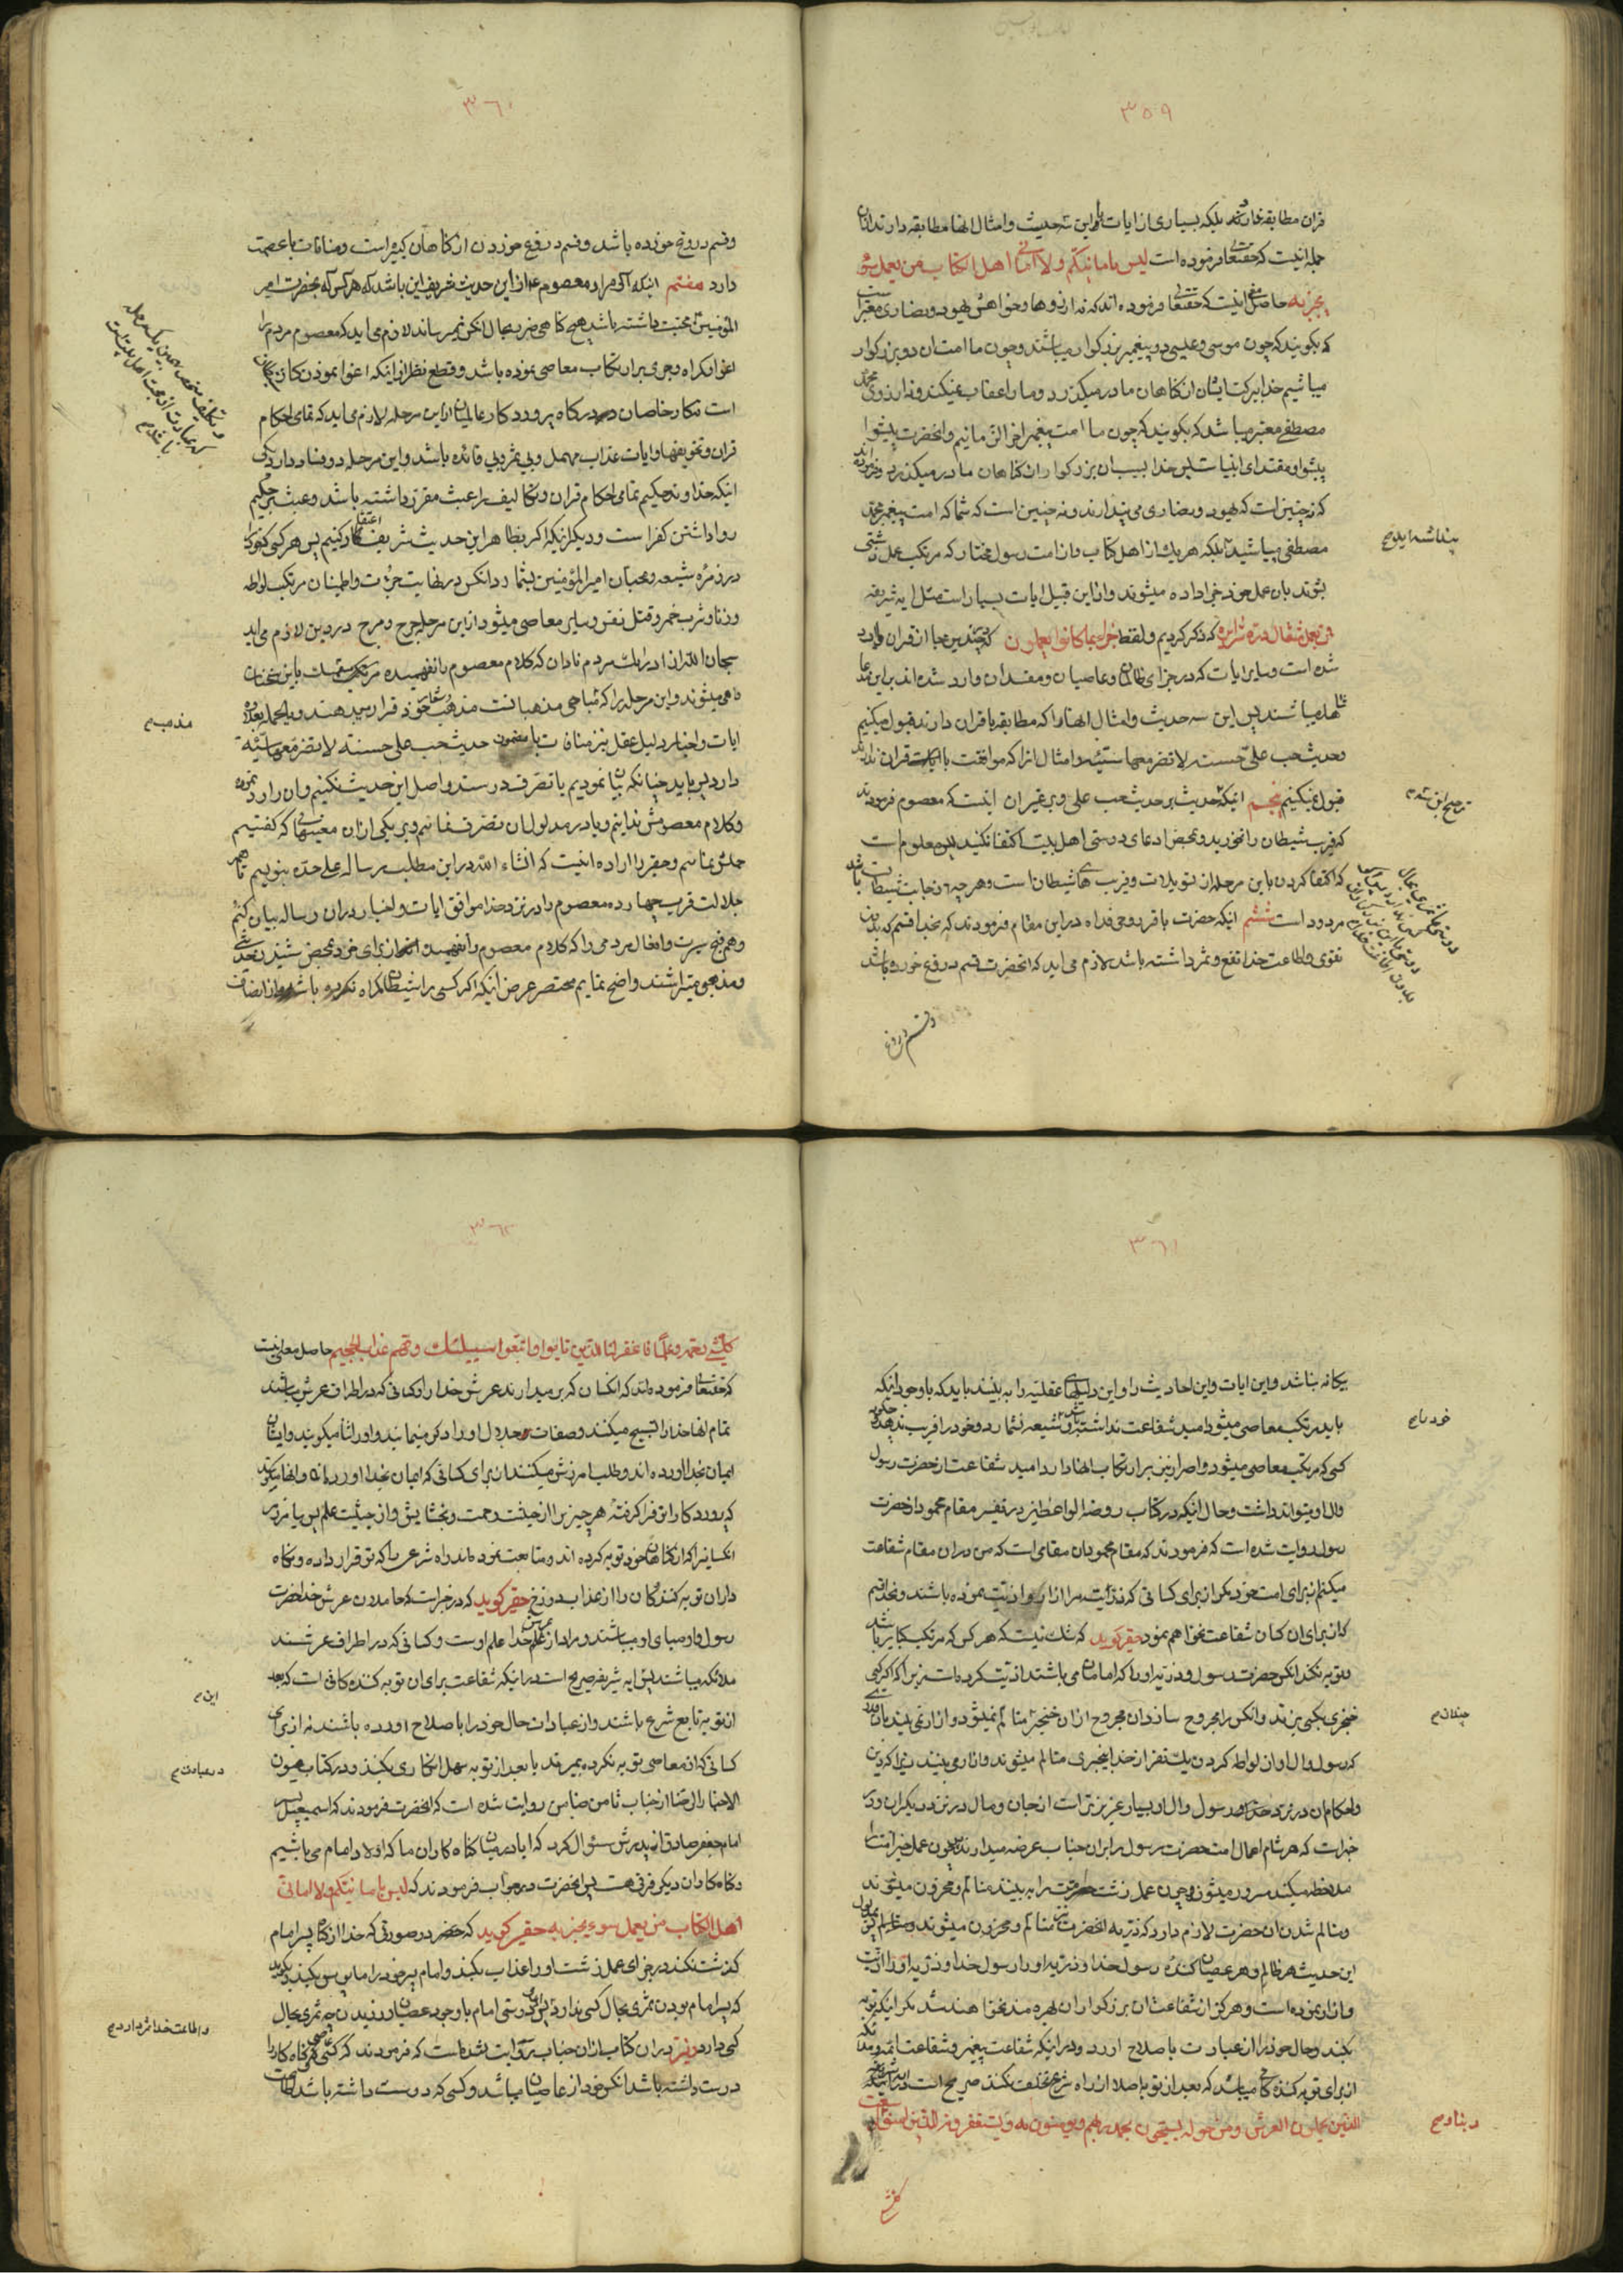 ٣٥٩
قران مطابقه ندارند بلکه بسیاری از ایات با این سه حدیث و امثال انها مطابقه دارند از ان
جمله اینست که حقتعالی فرموده است لیس بامانیکم ولا امانی اهل الکتاب من یعمل سوء
یجز به حاصل معنی اینست که حقتعالی فرموده اند که نه ارزوها و خواهش یهود و نصاری معتبر است
که بگویند که چون موسی و عیسی دو پیغمبر بزرکوار میباشند و چون ما امتان دو بزرکوار
میباشیم خدا ببرکت ایشان از کناهان ما در میکذرد و ما را عقاب نمیکند و نه ارزوی محمد
مصطفی معتبر میباشد که بکویند که چون ما امت پیغمبر اخر الزمانیم و انحضرت پیشوا
پیشوا و مقتدای انبیاست پس خدا بسبب ان بزرکوار از کناهان ما در میکذرد و فرموده اند
که نه چنین است که یهود و نصاری می پندارند و نه چنین است که شما که امت پیغمبر محمد
مصطفی میباشید بلکه هر یک از اهل کتاب و از امت رسول مختار که مرتکب عمل زشتی
پنداشته اید صح
بشوند بان عمل خود جزا داده میشوند و از این قبیل ایات بسیار است مثل ایه شریفه
فمن یعمل مثقال ذرة شرا یره که ذکر کردیم و لفظ جزاء بما کانوا یعملون که در چندین جا از قران وارد
شده است و سایر ایات که در جزای ظالمان و عاصیان و مفسدان وارد شده اند بر این مدعا
شاهد میباشند پس این سه حدیث و امثال انها را که مطابقه با قران دارند قبول میکنیم
و حدیث حب علی حسنة لا تضر معها سیئة و امثال انرا که موافقت با ایات قران ندارند
قبول نمیکنیم پنجم اینکه حدیث بر حدیث حب علی و بر غیر ان اینست که معصوم فرمودند
ترجیح این سه صح
که فریب شیطان را نخورید و بمحض ادعای دوستی اهل بیت اکتفا نکنید پس معلوم است
که اکتفا کردن باین مرحله از تسویلات و فریب های شیطان است و هر چه از جانب شیطان باشد
مردود است ششم اینکه حضرت باقر روحی فداه در این مقام فرمودند که بخدا قسم که بدون
تقوی و اطاعت خدا نفع و ثمر داشته باشد لازم می اید که انحضرت قسم دروغ خورده باشد
وقسم دروغ
٣٦٠
وقسم دروغ خورده باشد و قسم دروغ خوردن از کناهان کبیره است و منافات با عصمت
دارد هفتم اینکه اکر مراد معصوم ع از این حدیث شریف این باشد که هر کس که بحضرت امیر
المؤمنین محبت داشته باشد هیچ کناهی ضرر بحال انکس نمیرساند لازم می اید که معصوم مردم را
اغوا و کمراه و جری بر ارتکاب معاصی نموده باشد و قطع نظر از اینکه اغوا نمودن کار
است نه کار خاصان درکاه پروردکار عالمیان از این مرحله لازم می اید که تمامی احکام
قران و تخویفها و ایات عذاب مهمل و بی ثمر و بی فائده باشد و این مرحله دو فساد دارد یکی
اینکه خداوند حکیم تمامی احکام قران و تکالیف را عبث مقرر داشته باشد و عبث بر حکیم
روا داشتن کفر است و دیکر اینکه اکر بظاهر این حدیث شریف اعتقاد کنیم پس هر کس که خود را
در زمره شیعه و محبان امیر المؤمنین بشمارد انکس در نهایت جرأت و اطمینان مرتکب لواطه
و زنا و شرب خمر و قتل نفس و سایر معاصی میشود از این مرحله هرج و مرج در دین لازم می اید
سبحان الله از ادراک مردم نادان که کلام معصوم را نفهمیده متمسک باین سخنان
واهی میشوند و این مرحله را که مباحی مذهبانست مذهب و شعار خود قرار میدهند و بالجمله بعلاوه
مذهب صح
ایات و اخبار دلیل عقل نیز منافات با مضمون حدیث حب علی حسنة لا تضر معها سیئة
دارد پس باید چنانکه بیان نمودیم یا تصرف در سند و اصل این حدیث بکنیم و ان را رد نموده
و کلام معصومش ندانیم و یا در مدلول ان تصرف نمائیم و بر یکی از ان معینهائی که کفتیم
حملش نمائیم و حقیر را اراده اینست که انشاء الله در این مطلب رساله علی حده بنویسم تا هم
جلالت قرب چهارده معصوم را در نزد خدا موافق ایات و اخبار در ان رساله بیان کنم
و هم قبح سیرت و افعال مردمی را که کلام معصوم را نفهمیده انجاز برای خود بمحض شنیدن حدیثی
و مذهبی میتراشند واضح نمایم مختصر عرض اینکه اکر کسی را شیطان کمراه نکرده باشد و از انصاف
٣٦١
بیکانه نباشد و این ایات و این احادیث را و این دلیلهای عقلیه را به بیند باید که با وجود اینکه
باید مرتکب معاصی میشود امید شفاعت نداشته باشد و شیعه نشمارد و خود را فریب ندهد و چکونه
خود را صح
کسی که مرتکب معاصی میشود و اصرار نیز بر ارتکاب انها دارد امید شفاعت از حضرت رسول
وال او میتواند داشت و حال اینکه در کتاب روضة الواعظین در تفسیر مقام محمود از حضرت
رسول روایت شده است که فرمودند که مقام محمود ان مقامی است که من در ان مقام شفاعت
میکنم از برای امت خود مکر از برای کسانی که ذریت مرا ازار و اذیت نموده باشند و بخدا قسم
که از برای ان کسان شفاعت نخواهم نمود حقیر کوید که شک نیست که هر کس که مرتکب کبایر باشد
و توبه نکند انکس حضرت رسول و ذریه او را که امامان می باشند اذیت کرده است زیرا که اکر کسی
خنجری بکسی بزند و انکس را مجروح سازد ان مجروح از ان خنجر متالم نمیشود و ازار نمی بیند بان قدر
چنان صح
که رسول وال او از لواطه کردن یک نفر از خدا بیخبری متالم میشوند و ازار می بینند زیرا که دین
و احکام ان در نزد خدا و رسول وال او بسیار عزیزتر است از جان و مال در نزد دیکران و در
خبر است که هر شام اعمال امت حضرت رسول را بر ان جناب عرضه میدارند چون عمل خیر امت را
ملاحظه میکند مسرور میشود و چون عمل زشت امت را به بیند متالم و محزون میشوند
و متالم شدن ان حضرت لازم دارد که ذریه انحضرت نیز متالم و محزون میشوند
این حدیث هر ظالم و هر عصیان کننده رسول خدا و ذریه او را رسول خدا و ذریه او را اذیت
و ازار نموده است و هرکز از شفاعت ان بزرکواران بهره مند نخواهند شد مکر اینکه توبه
بکند و حال خود را از عبادت باصلاح اورد و در اینکه شفاعت پیغمبر و شفاعت ائمه و ملائکه
از برای توبه کننده کان میباشد که بعد از توبه اصلا از راه شرع تخلف نکند صریح است
الذین یحملون العرش و من حوله یسبحون بحمد ربهم و یؤمنون به و یستغفرون للذین امنوا ربنا وسعت
ربنا و صح
کل شیء
٣٦٢
کل شیء رحمة و علما فاغفر للذین تابوا و اتبعوا سبیلک و قهم عذاب الجحیم حاصل معنی اینست
که حقتعالی فرموده اند که انکسان که بر میدارند عرش خدا را و کسانی که در اطراف عرش میباشند
تمام انها خدا را تسبیح میکنند و صفات جلال او را ذکر مینمایند و او را ثنا میکویند و ایشان
ایمان بخدا اورده اند و طلب امرزش میکنند از برای کسانی که ایمان بخدا اورده اند و انها میکویند
که پروردکارا تو فرا کرفته هر چیز را از حیثیت رحمت و بخشایش و از حیثیت علم پس بیامرز
انکسانی را که از کناهان خود توبه کرده اند و متابعت نموده اند راه شرعی را که تو قرار داده و نکاه
دار ان توبه کنندکان را از عذاب دوزخ حقیر کوید که در خبر است که حاملان عرش خدا حضرت
رسول و اوصیای او میباشند و مراد از عرش خدا علم اوست و کسانی که در اطراف عرشند
ملائکه میباشند پس ایه شریفه صریح است در اینکه شفاعت برای ان توبه کننده کانی است که بعد
این صح
از توبه تابع شرع باشند و از عبادات حال خود را باصلاح اورده باشند نه از برای
کسانی که از معاصی توبه نکرده بمیرند یا بعد از توبه سهل انکاری بکنند و در کتاب عیون
در عبادت صح
الاخبار الرضا از جناب ثامن ضامن روایت شده است که انحضرت فرمودند که اسمعیل پسر
امام جعفر صادق از پدرش سئوال کرد که ایا در میان کناه کاران ما که اولاد امام می باشیم
و کناه کاران دیکر فرقی هست پس انحضرت در جواب فرمودند که لیس بامانیکم ولا امانی
اهل الکتاب من یعمل سوء یجز به حقیر کوید که در صورتی که خدا از کناه پسر امام
کذشت نکند در جزای عمل زشت او را عذاب بکند و امام پسر خود را مایوس بکند و بکوید
که پسر امام بودن ثمری بحال کسی ندارد پس دوستی امام با وجود عصیان ورزیدن چه ثمری بحال
و اطاعت خدا نداردم صح
کسی دارد و نیز در ان کتاب از ان جناب روایت شده است که فرمودند که کسی که عاصی و کناه کار را
دوست داشته باشد انکس خود از عاصیان میباشد و کسی که دوست داشته باشد اطاعت